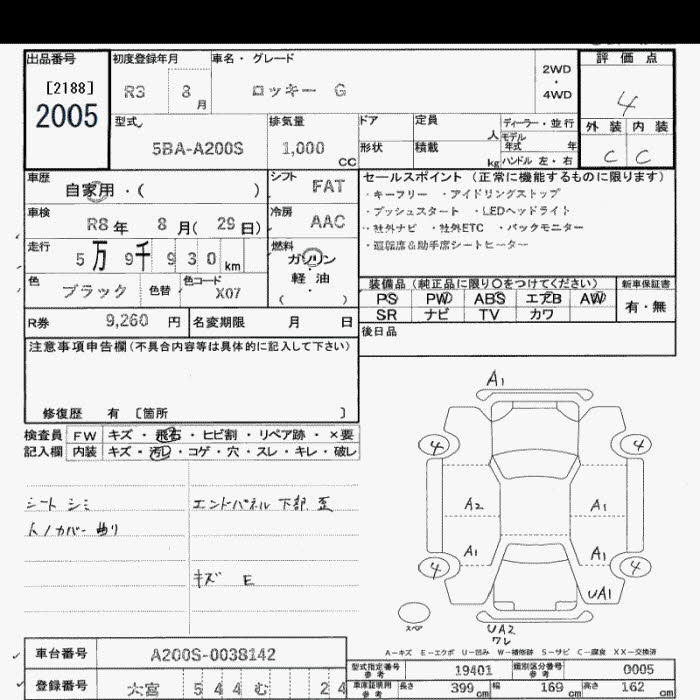 出品番号 初度登録年月 車名・グレード 評価点
[2188] R3 8月 ロッキー G 2WD・4WD 4
2005
型式 排気量 ドア 定員 人 ディーラー・並行 外装 内装
5BA-A200S 1,000 CC 形状 積載 kg モデル年式 年 ハンドル 左・右 C C
車歴 自家用・( ) シフト FAT セールスポイント (正常に機能するものに限ります)
・キーフリー ・アイドリングストップ
車検 R8年 8月( 29日) 冷房 AAC ・プッシュスタート ・LEDヘッドライト
・社外ナビ ・社外ETC ・バックモニター
走行 5万 9千 9 3 0 km 燃料 ガソリン ・運転席&助手席シートヒーター
軽油
( )
色 ブラック 色替 色コード X07 装備品 (純正品に限り〇をつけてください) 新車保証書
PS PW ABS エアB AW 有・無
SR ナビ TV カワ
R券 9,260 円 名変期限 月 日 後日品
注意事項申告欄(不具合内容等は具体的に記入して下さい)
修復歴 有 〔箇所 〕
検査員 FW キズ・飛石・ヒビ割・リペア跡・×要
記入欄 内装 キズ・汚レ・コゲ・穴・スレ・キレ・破レ
シート シミ エンドパネル 下部 歪
トノカバー 曲り
キズ E
A1
4 4
A2 A1
A1 A1
4 4
UA1
スペア UA2
ワレ
A-キズ E-エクボ U-凹み W-補修跡 S-サビ C-腐食 XX-交換済
車台番号 A200S-0038142 型式指定番号 参考 19401 類別区分番号 参考 0005
登録番号 大宮 5 4 4 む 2 4 車庫証明用 参考 長さ 399 cm 幅 169 cm 高さ 162 cm